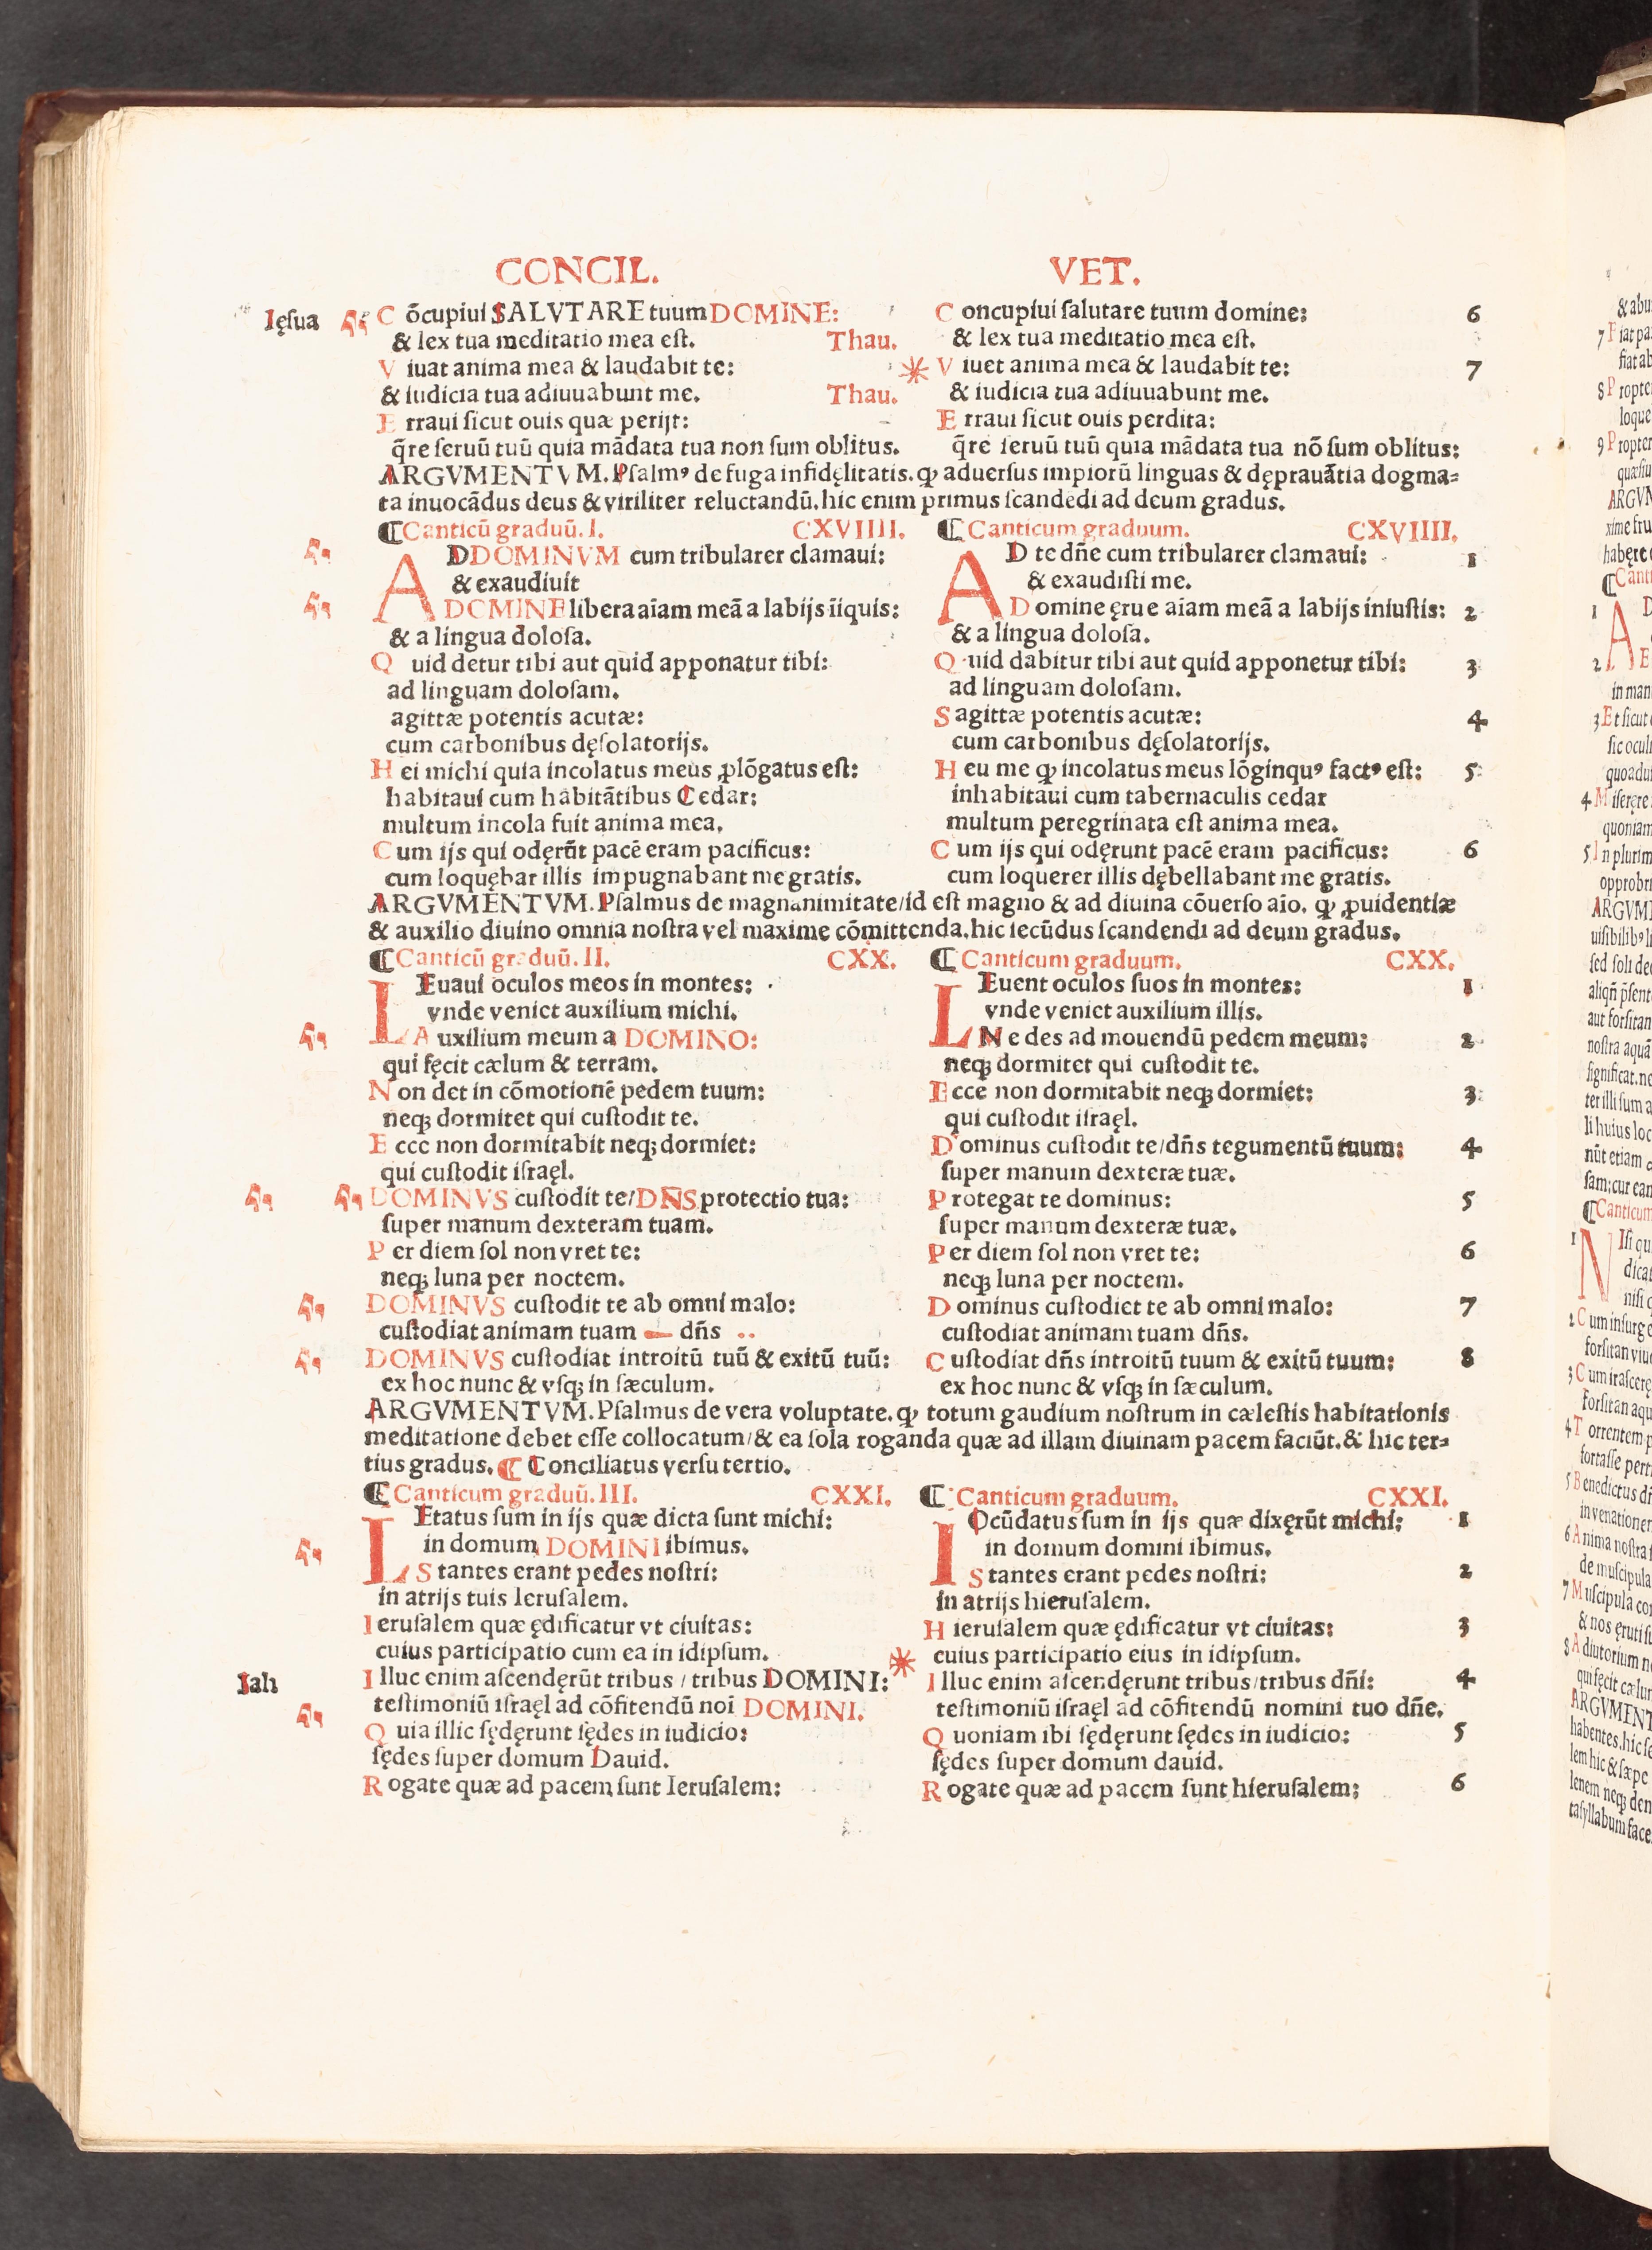 CONCIL.
Ięsua
Cõcupiui SALVTARE tuum DOMINE:
& lex tua meditatio mea eſt. Thau.
Viuat anima mea & laudabit te:
& iudicia tua adiuuabunt me. Thau.
Erraui ſicut ouis quæ perijt:
q̃re ſeruũ tuũ quia mãdata tua non ſum oblitus.
VET.
Concupiui ſalutare tuum domine: 6
& lex tua meditatio mea eſt.
Viuet anima mea & laudabit te: 7
& iudicia tua adiuuabunt me.
Erraui ſicut ouis perdita:
q̃re ſeruũ tuũ quia mãdata tua nõ ſum oblitus:
ARGVMENTVM. Pſalmꝰ de fuga infidęlitatis. ꝙ aduerſus impiorũ linguas & dęprauãtia dogma⸗
ta inuocãdus deus & viriliter reluctandũ. hic enim primus ſcandedi ad deum gradus.
¶ Canticũ graduũ. I. CXVIIII.
ADDOMINVM cum tribularer clamaui:
& exaudiuit
DOMINE libera aĩam meã a labijs ĩiquis:
& a lingua doloſa.
Quid detur tibi aut quid apponatur tibi:
ad linguam doloſam.
agittæ potentis acutæ:
cum carbonibus dęſolatorijs.
Hei michi quia incolatus meus ꝓlõgatus eſt:
habitaui cum habitãtibus Cedar:
multum incola fuit anima mea.
Cum ijs qui odęrũt pacẽ eram pacificus:
cum loquębar illis impugnabant me gratis.
¶ Canticum graduum. CXVIIII.
AD te dñe cum tribularer clamaui: 1
& exaudiſti me.
Domine ęrue aĩam meã a labijs iniuſtis: 2
& a lingua doloſa.
Quid dabitur tibi aut quid apponetur tibi: 3
ad linguam doloſam.
Sagittæ potentis acutæ: 4
cum carbonibus dęſolatorijs.
Heu me ꝙ incolatus meus lõginquꝰ factꝰ eſt: 5
inhabitaui cum tabernaculis cedar
multum peregrinata eſt anima mea.
Cum ijs qui odęrunt pacẽ eram pacificus: 6
cum loquerer illis dębellabant me gratis.
ARGVMENTVM. Pſalmus de magnanimitate/id eſt magno & ad diuina cõuerſo aĩo. ꝙ ꝓuidentiæ
& auxilio diuino omnia noſtra vel maxime cõmittenda. hic ſecũdus ſcandendi ad deum gradus.
¶ Canticũ graduũ. II. CXX.
LEuaui oculos meos in montes:
vnde veniet auxilium michi.
Auxilium meum a DOMINO:
qui fęcit cælum & terram.
Non det in cõmotionẽ pedem tuum:
neqꝫ dormitet qui cuſtodit te.
Eccc non dormitabit neqꝫ dormiet:
qui cuſtodit iſraęl.
DOMINVS cuſtodit te/DÑS protectio tua:
ſuper manum dexteram tuam.
Per diem ſol non vret te:
neqꝫ luna per noctem.
DOMINVS cuſtodit te ab omni malo:
cuſtodiat animam tuam dñs
DOMINVS cuſtodiat introitũ tuũ & exitũ tuũ:
ex hoc nunc & vſqꝫ in ſæculum.
¶ Canticum graduum. CXX.
LEuent oculos ſuos in montes: 1
vnde veniet auxilium illis.
Ne des ad mouendũ pedem meum: 2
neqꝫ dormitet qui cuſtodit te.
Ecce non dormitabit neqꝫ dormiet: 3
qui cuſtodit iſraęl.
Dominus cuſtodit te/dñs tegumentũ tuum: 4
ſuper manum dexteræ tuæ.
Protegat te dominus: 5
ſuper manum dexteræ tuæ.
Per diem ſol non vret te: 6
neqꝫ luna per noctem.
Dominus cuſtodiet te ab omni malo: 7
cuſtodiat animam tuam dñs.
Cuſtodiat dñs introitũ tuum & exitũ tuum: 8
ex hoc nunc & vſqꝫ in ſæculum.
ARGVMENTVM. Pſalmus de vera voluptate. ꝙ totum gaudium noſtrum in cæleſtis habitationis
meditatione debet eſſe collocatum/& ea ſola roganda quæ ad illam diuinam pacem faciũt. & hic ter⸗
tius gradus. ¶ Conciliatus verſu tertio.
¶ Canticum graduũ. III. CXXI.
LEtatus ſum in ijs quæ dicta ſunt michi:
in domum DOMINI ibimus.
Stantes erant pedes noſtri:
in atrijs tuis Ieruſalem.
Ieruſalem quæ ędificatur vt ciuitas:
cuius participatio cum ea in idipſum.
Iah
Illuc enim aſcendęrũt tribus / tribus DOMINI:
teſtimoniũ iſraęl ad cõfitendũ noĩ DOMINI.
Quia illic ſędęrunt ſędes in iudicio:
ſędes ſuper domum Dauid.
Rogate quæ ad pacem ſunt Ieruſalem:
¶ Canticum graduum. CXXI.
IOcũdatus ſum in ijs quæ dixęrũt michi: 1
in domum domini ibimus.
Stantes erant pedes noſtri: 2
in atrijs hieruſalem.
Hieruſalem quæ ędificatur vt ciuitas: 3
cuius participatio eius in idipſum.
Illuc enim aſcendęrunt tribus/tribus dñi: 4
teſtimoniũ iſraęl ad cõfitendũ nomini tuo dñe.
Quoniam ibi ſędęrunt ſędes in iudicio: 5
ſędes ſuper domum dauid.
Rogate quæ ad pacem ſunt hieruſalem: 6